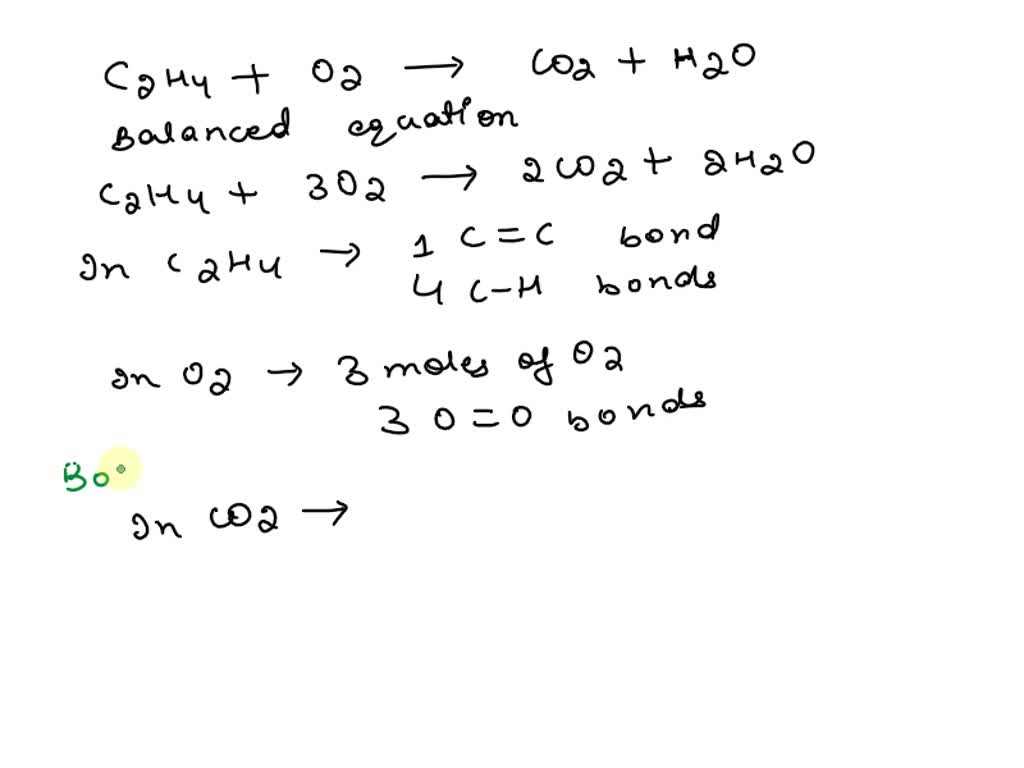 C2H4 + O2 → CO2 + H2O
Balanced equation
C2H4 + 3O2 → 2CO2 + 2H2O
In C2H4 → 1 C=C bond
4 C-H bonds
In O2 → 3 moles of O2
3 O=O bonds
Bo
In CO2 →